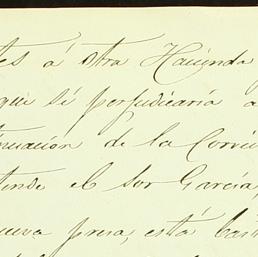 tes á otra Hacienda
que se perjudicaría a
tinuación de la Corri
tiende el Sor García,
nueva presa, está bas